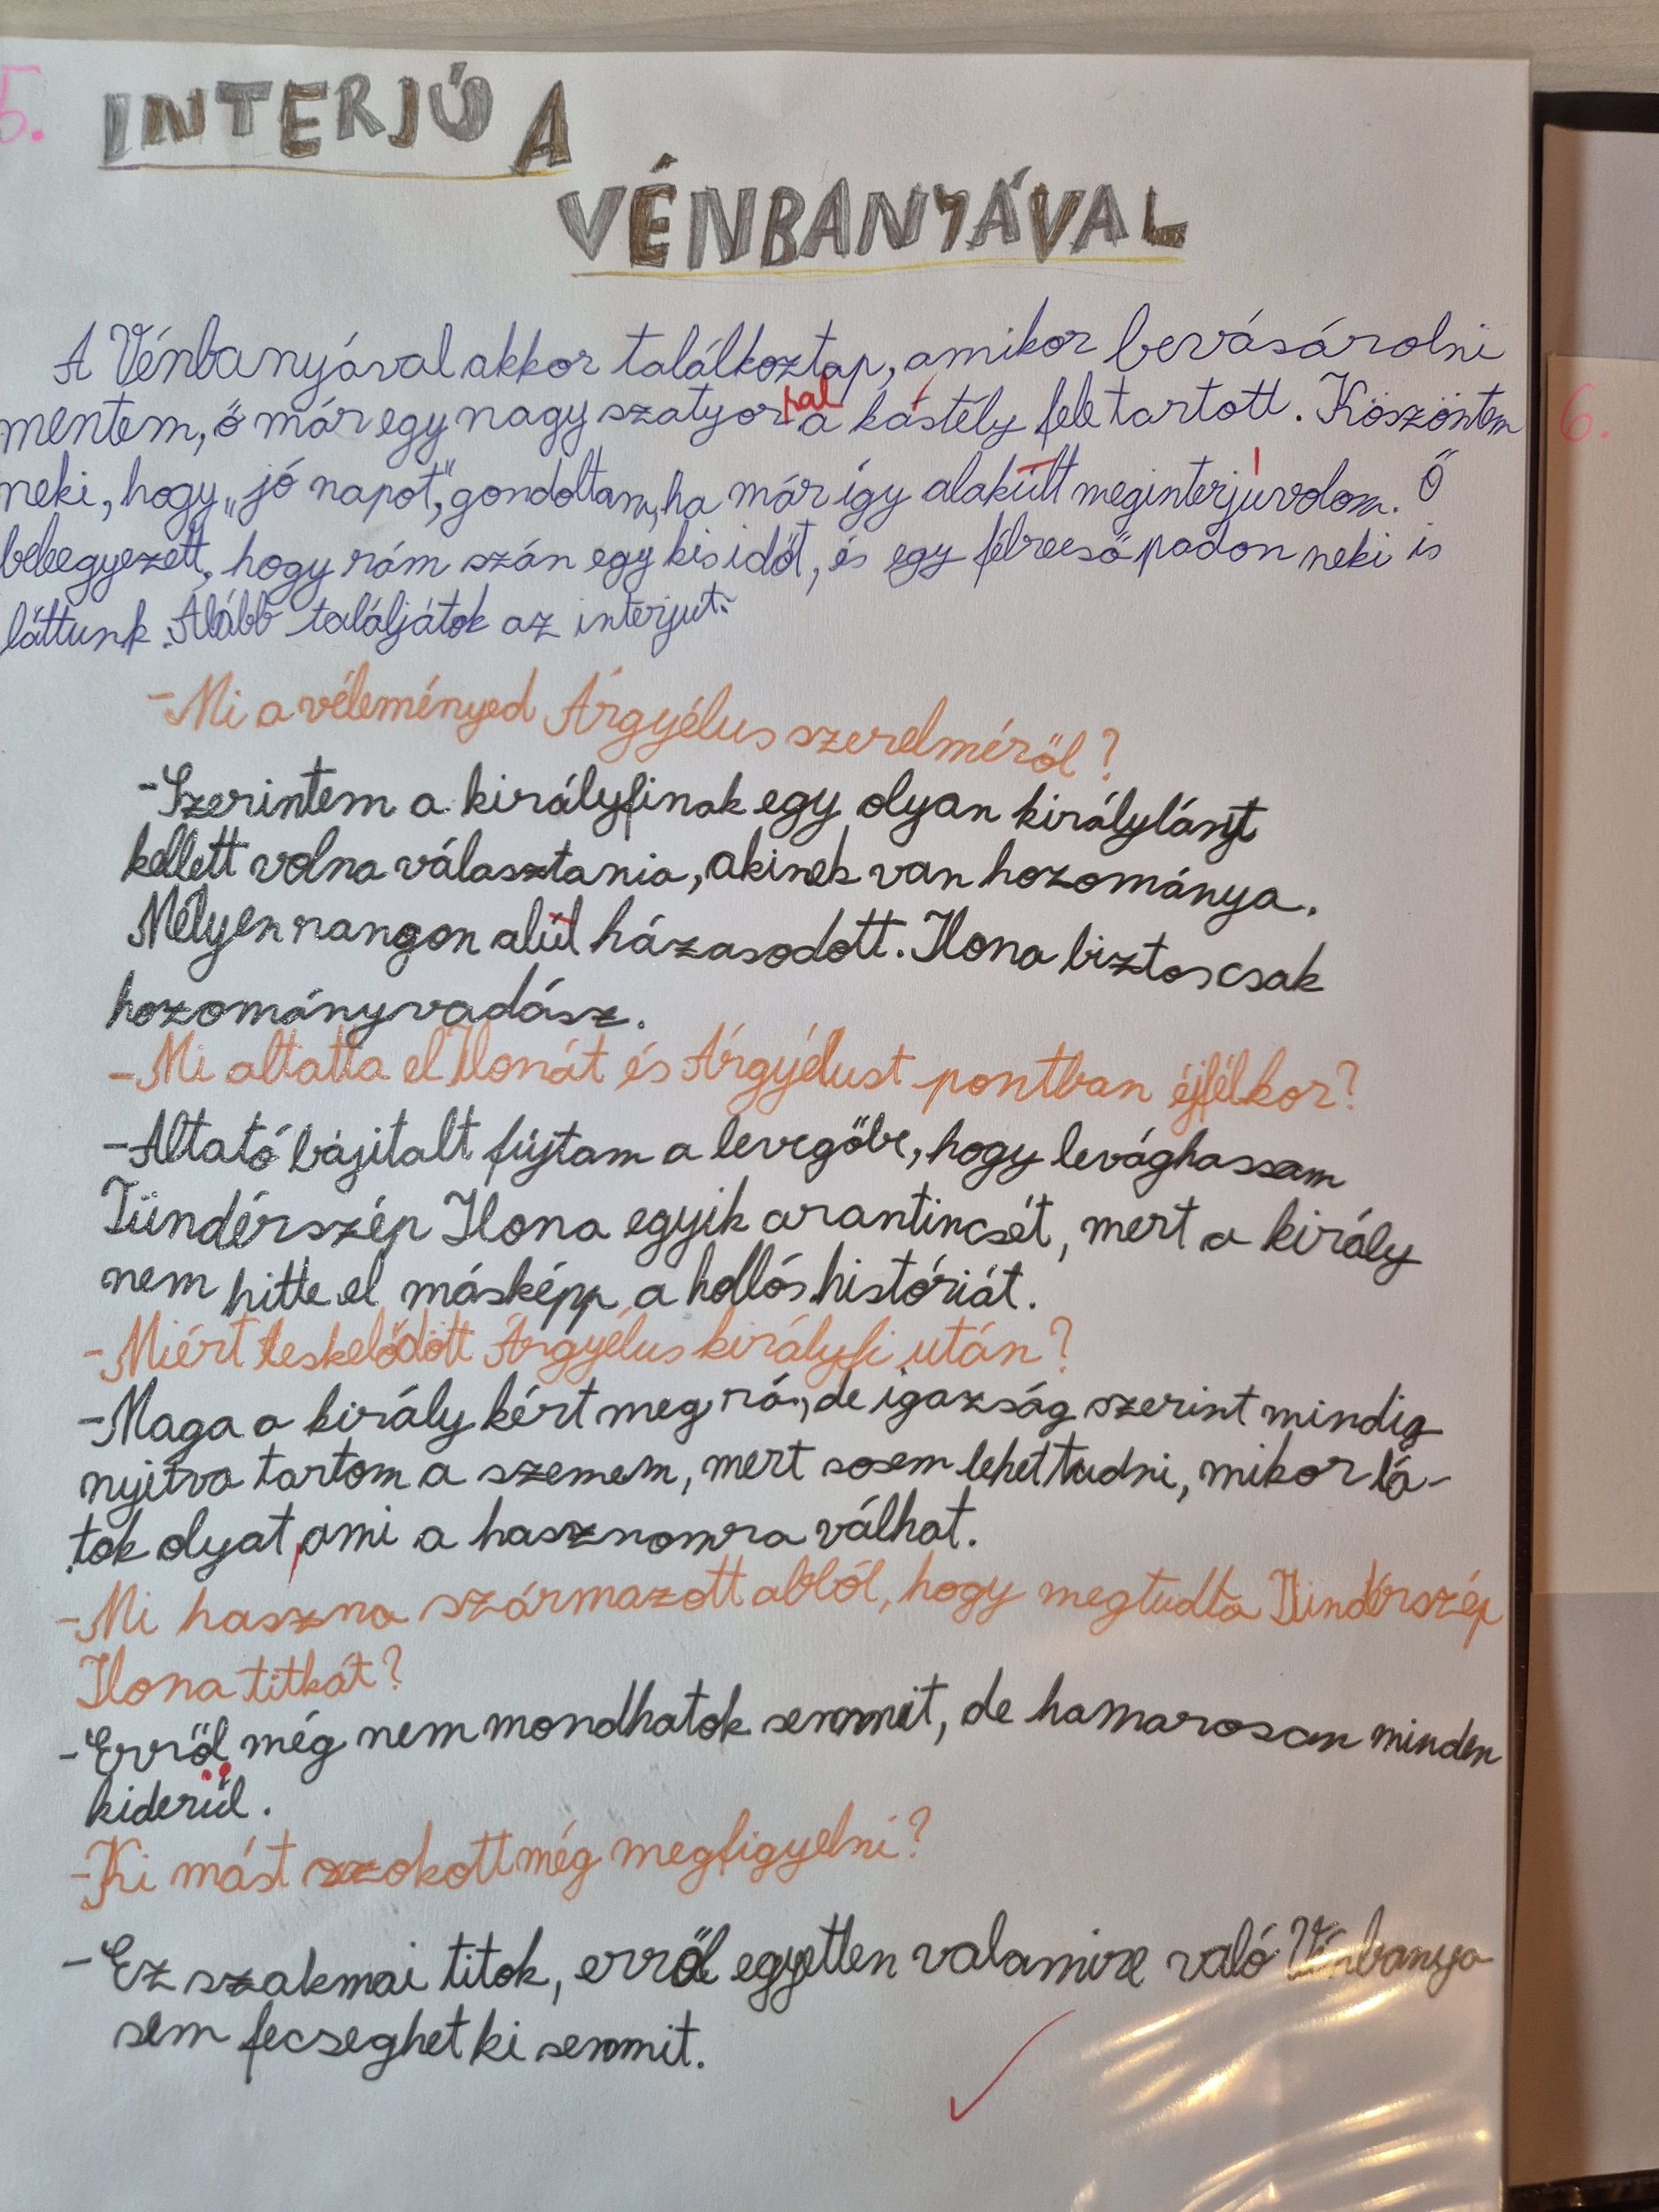 5.
INTERJÚ A
VÉNBANYÁVAL
A Vénbanyával akkor találkoztap, amikor bevásárolni
mentem, ő már egy nagy szatyorral a kastély fele tartott. Köszöntem
neki, hogy „jó napot”, gondoltam, ha már így alakúlt meginterjúvolom. Ő
belegyezett, hogy rám szán egy kis időt, és egy félreeső padon neki is
láttunk. Alább találjátok az interjut:
-Mi a véleményed Árgyélus szerelméről?
-Szerintem a királyfinak egy olyan királylányt
kellett volna választania, akinek van hozománya.
Mélyen rangon alúl házasodott. Ilona biztos csak
hozományvadász.
-Mi altatta el Ilonát és Árgyélust pontban éjfélkor?
-Altató bájitalt fújtam a levegőbe, hogy levághassam
Tündérszép Ilona egyik arantincsét, mert a király
nem hitte el másképp a hollós históriát.
-Miért leskelődött Árgyélus királyfi után?
-Maga a király kért meg rá, de igazság szerint mindig
nyitva tartom a szemem, mert sosem lehet tudni, mikor lá-
tok olyat, ami a hasznomra válhat.
-Mi haszna származott abból, hogy megtudta Tündérszép
Ilona titkát?
-Erről még nem mondhatok semmit, de hamarosan minden
kiderül.
-Ki mást szokott még megfigyelni?
-Ez szakmai titok, erről egyetlen valamire való Vénbanya
sem fecseghet ki semmit.
6.